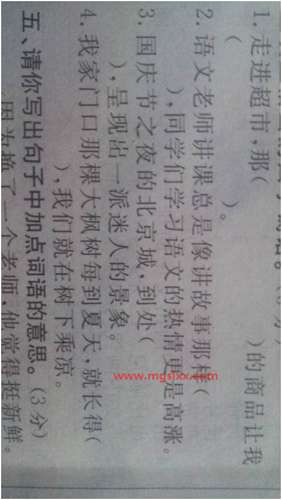 1. 走进超市,那(　　)的商品让我
(　　)。
2. 语文老师讲课总是像讲故事那样(
),同学们学习语文的热情更是高涨。
3. 国庆节之夜的北京城,到处(
),呈现出一派迷人的景象。
4. 我家门口那棵大枫树每到夏天,就长得(
),我们就在树下乘凉。
五、请你写出句子中加点词语的意思。(3分)
因为换了一个老师,他觉得挺新鲜。
www.mgshxx.com